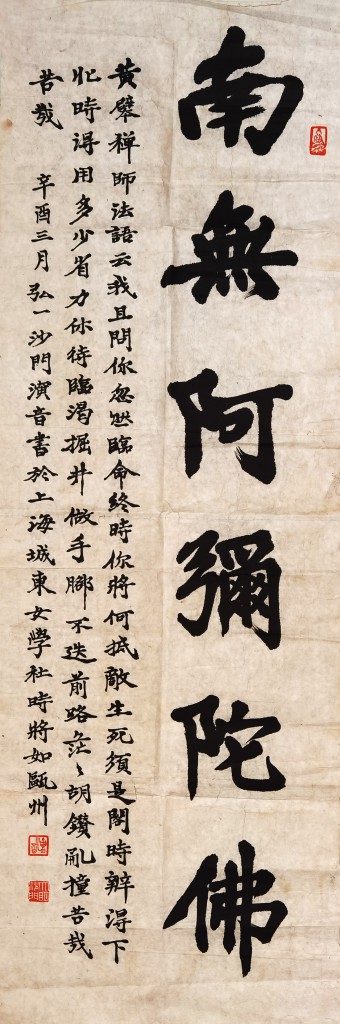 南無阿彌陀佛
黄檗禅師法語云我且問你忽然臨命終時你將何抵敵生死須是閑時辦得下
忙時得用多少省力你待臨渴掘井做手腳不迭前路茫〻胡鑽亂撞苦哉
苦哉
辛酉三月弘一沙門演音書於上海城東女學社時將如甌州